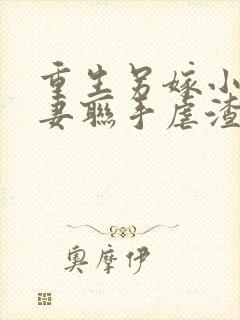 重生另嫁小
妻联手虐渣
奥摩伊